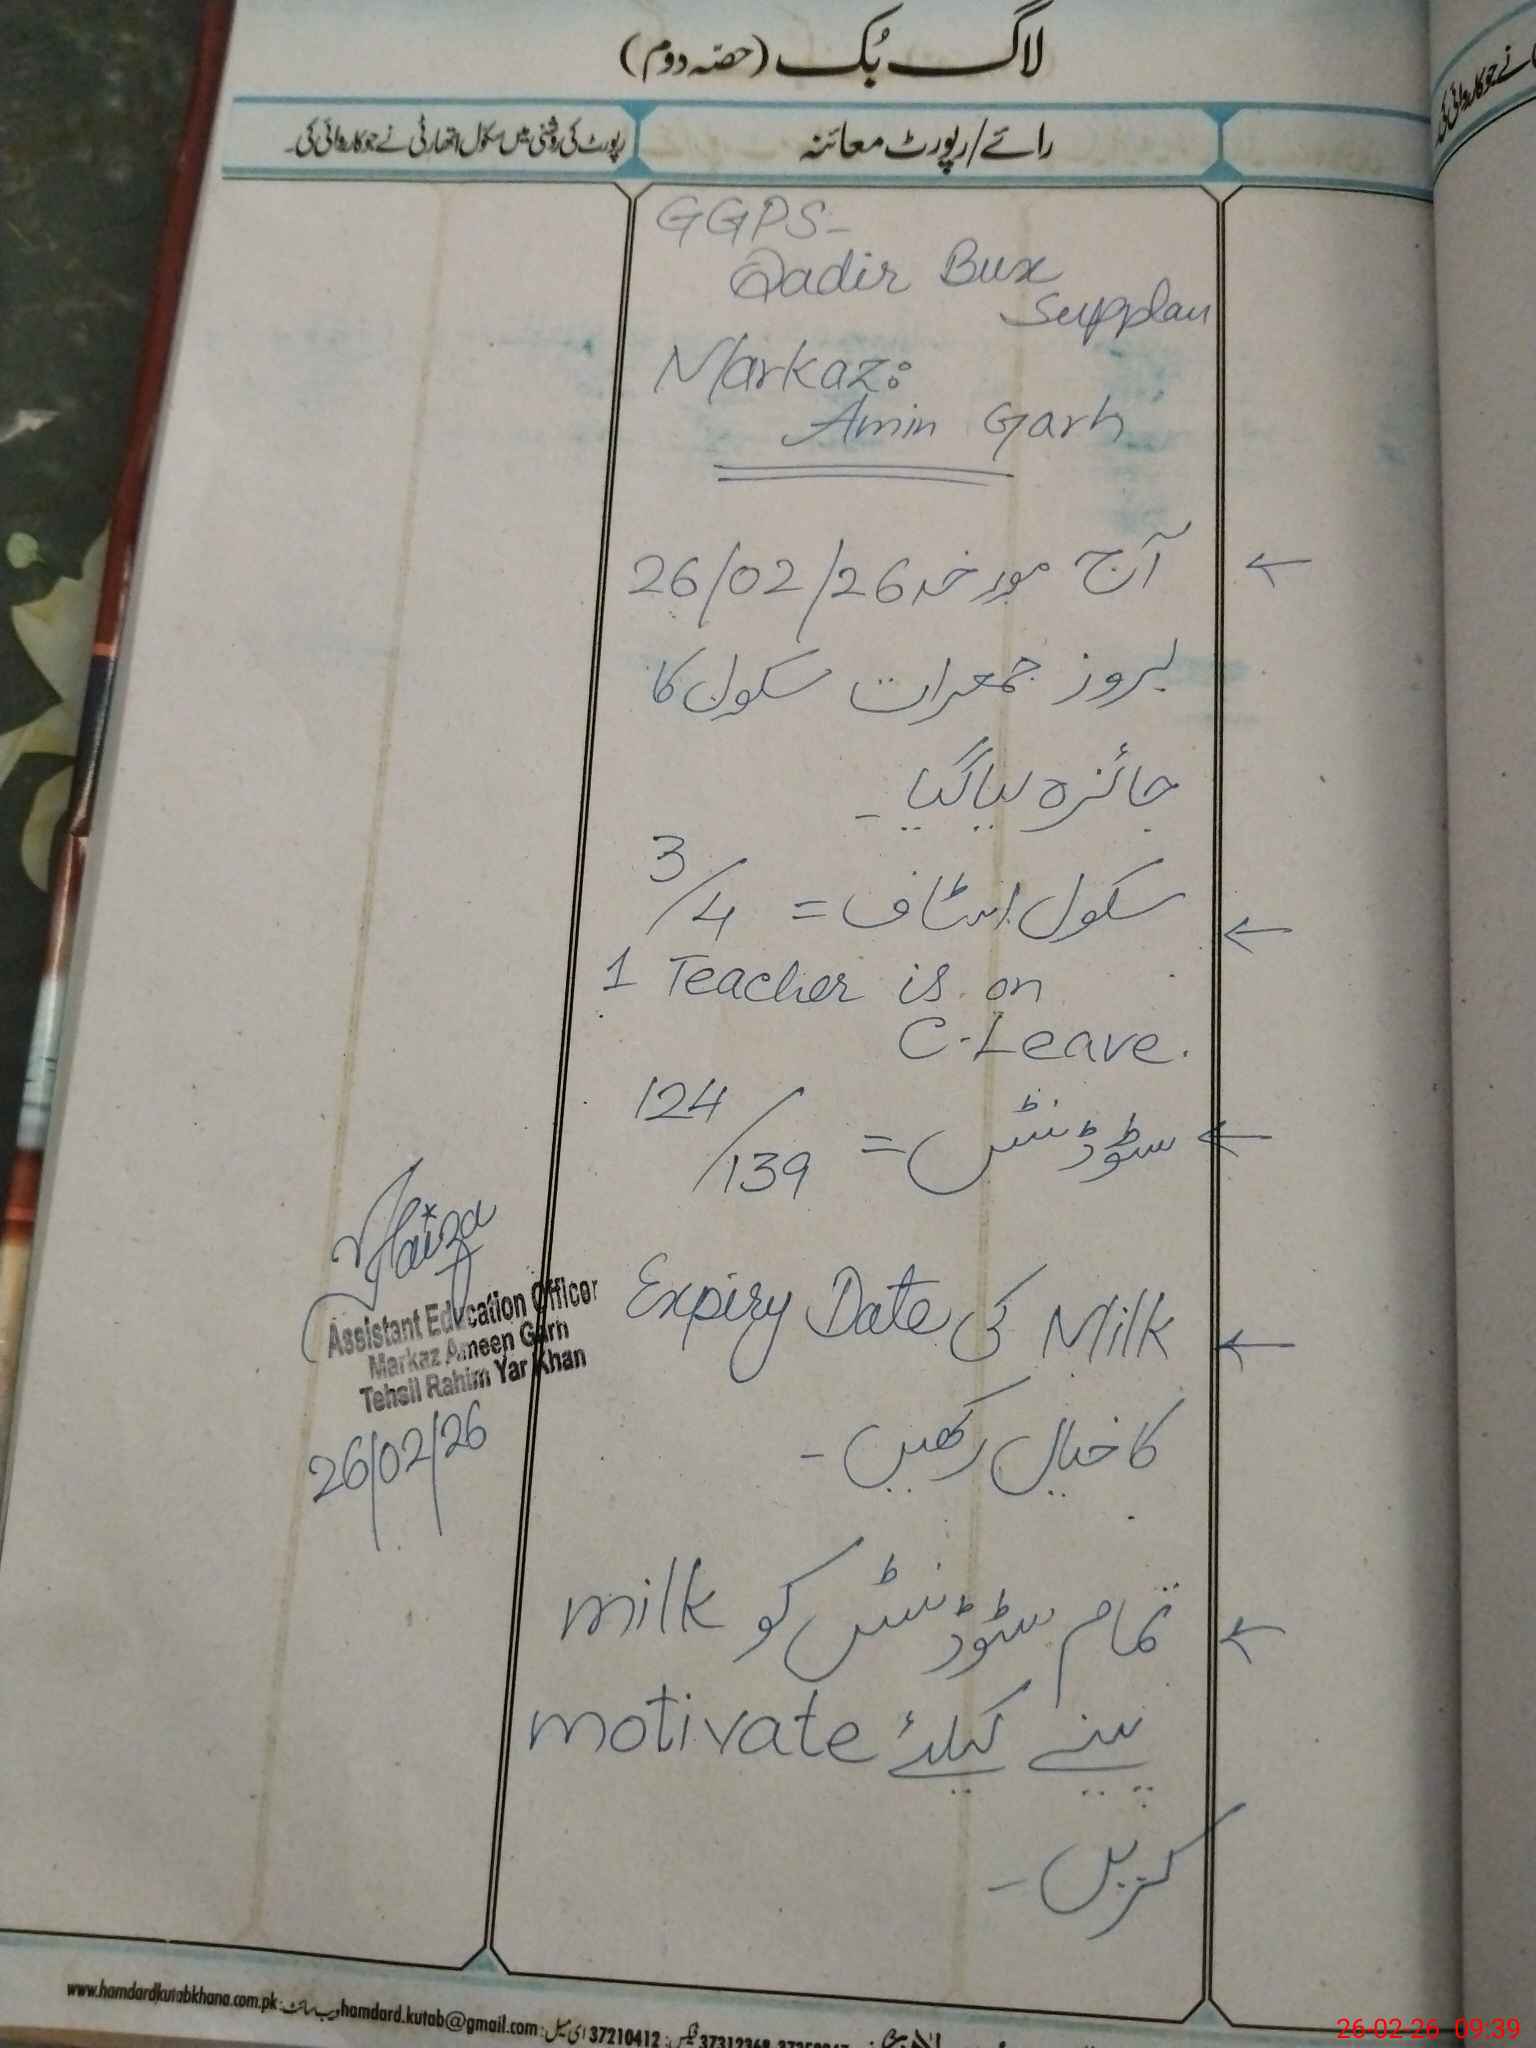 لاگ بُک (حصّہ دوم)
رائے/رپورٹ معائنہ
رپورٹ کی روشنی میں سکول اتھارٹی نے جو کاروائی کی۔
GGPS-
Qadir Bux
Markaz:
Amin Garh
آج مورخہ 26/02/26
بروز جمعرات سکول کا
جائزہ لیا گیا۔
سکول اسٹاف = 3/4
1 Teacher is on
C-Leave.
سٹوڈنٹس = 124/139
Milk کی Expiry Date
کا خیال رکھیں۔
تمام سٹوڈنٹس کو milk
پینے کیلئے motivate
کریں۔
Assistant Education Officer
Markaz Ameen Garh
Tehsil Rahim Yar Khan
26/02/26
www.hamdardkutabkhana.com.pk :ویب سائٹ hamdard.kutab@gmail.com :ای میل 37210412 :فیکس
26-02-26 09:39